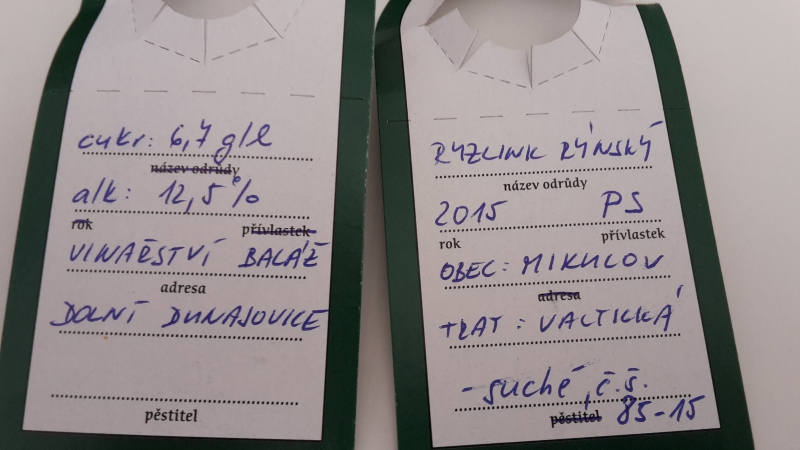 cukr: 6,7 g/l
název odrůdy
alk: 12,5 %
rok přívlastek
VINAŘSTVÍ BALÁŽ
adresa
DOLNÍ DUNAJOVICE
pěstitel
RYZLINK RÝNSKÝ
název odrůdy
2015 PS
rok přívlastek
OBEC: MIKULOV
adresa
TRAŤ: VALTICKÁ
- suché, č.š.
pěstitel 85-15